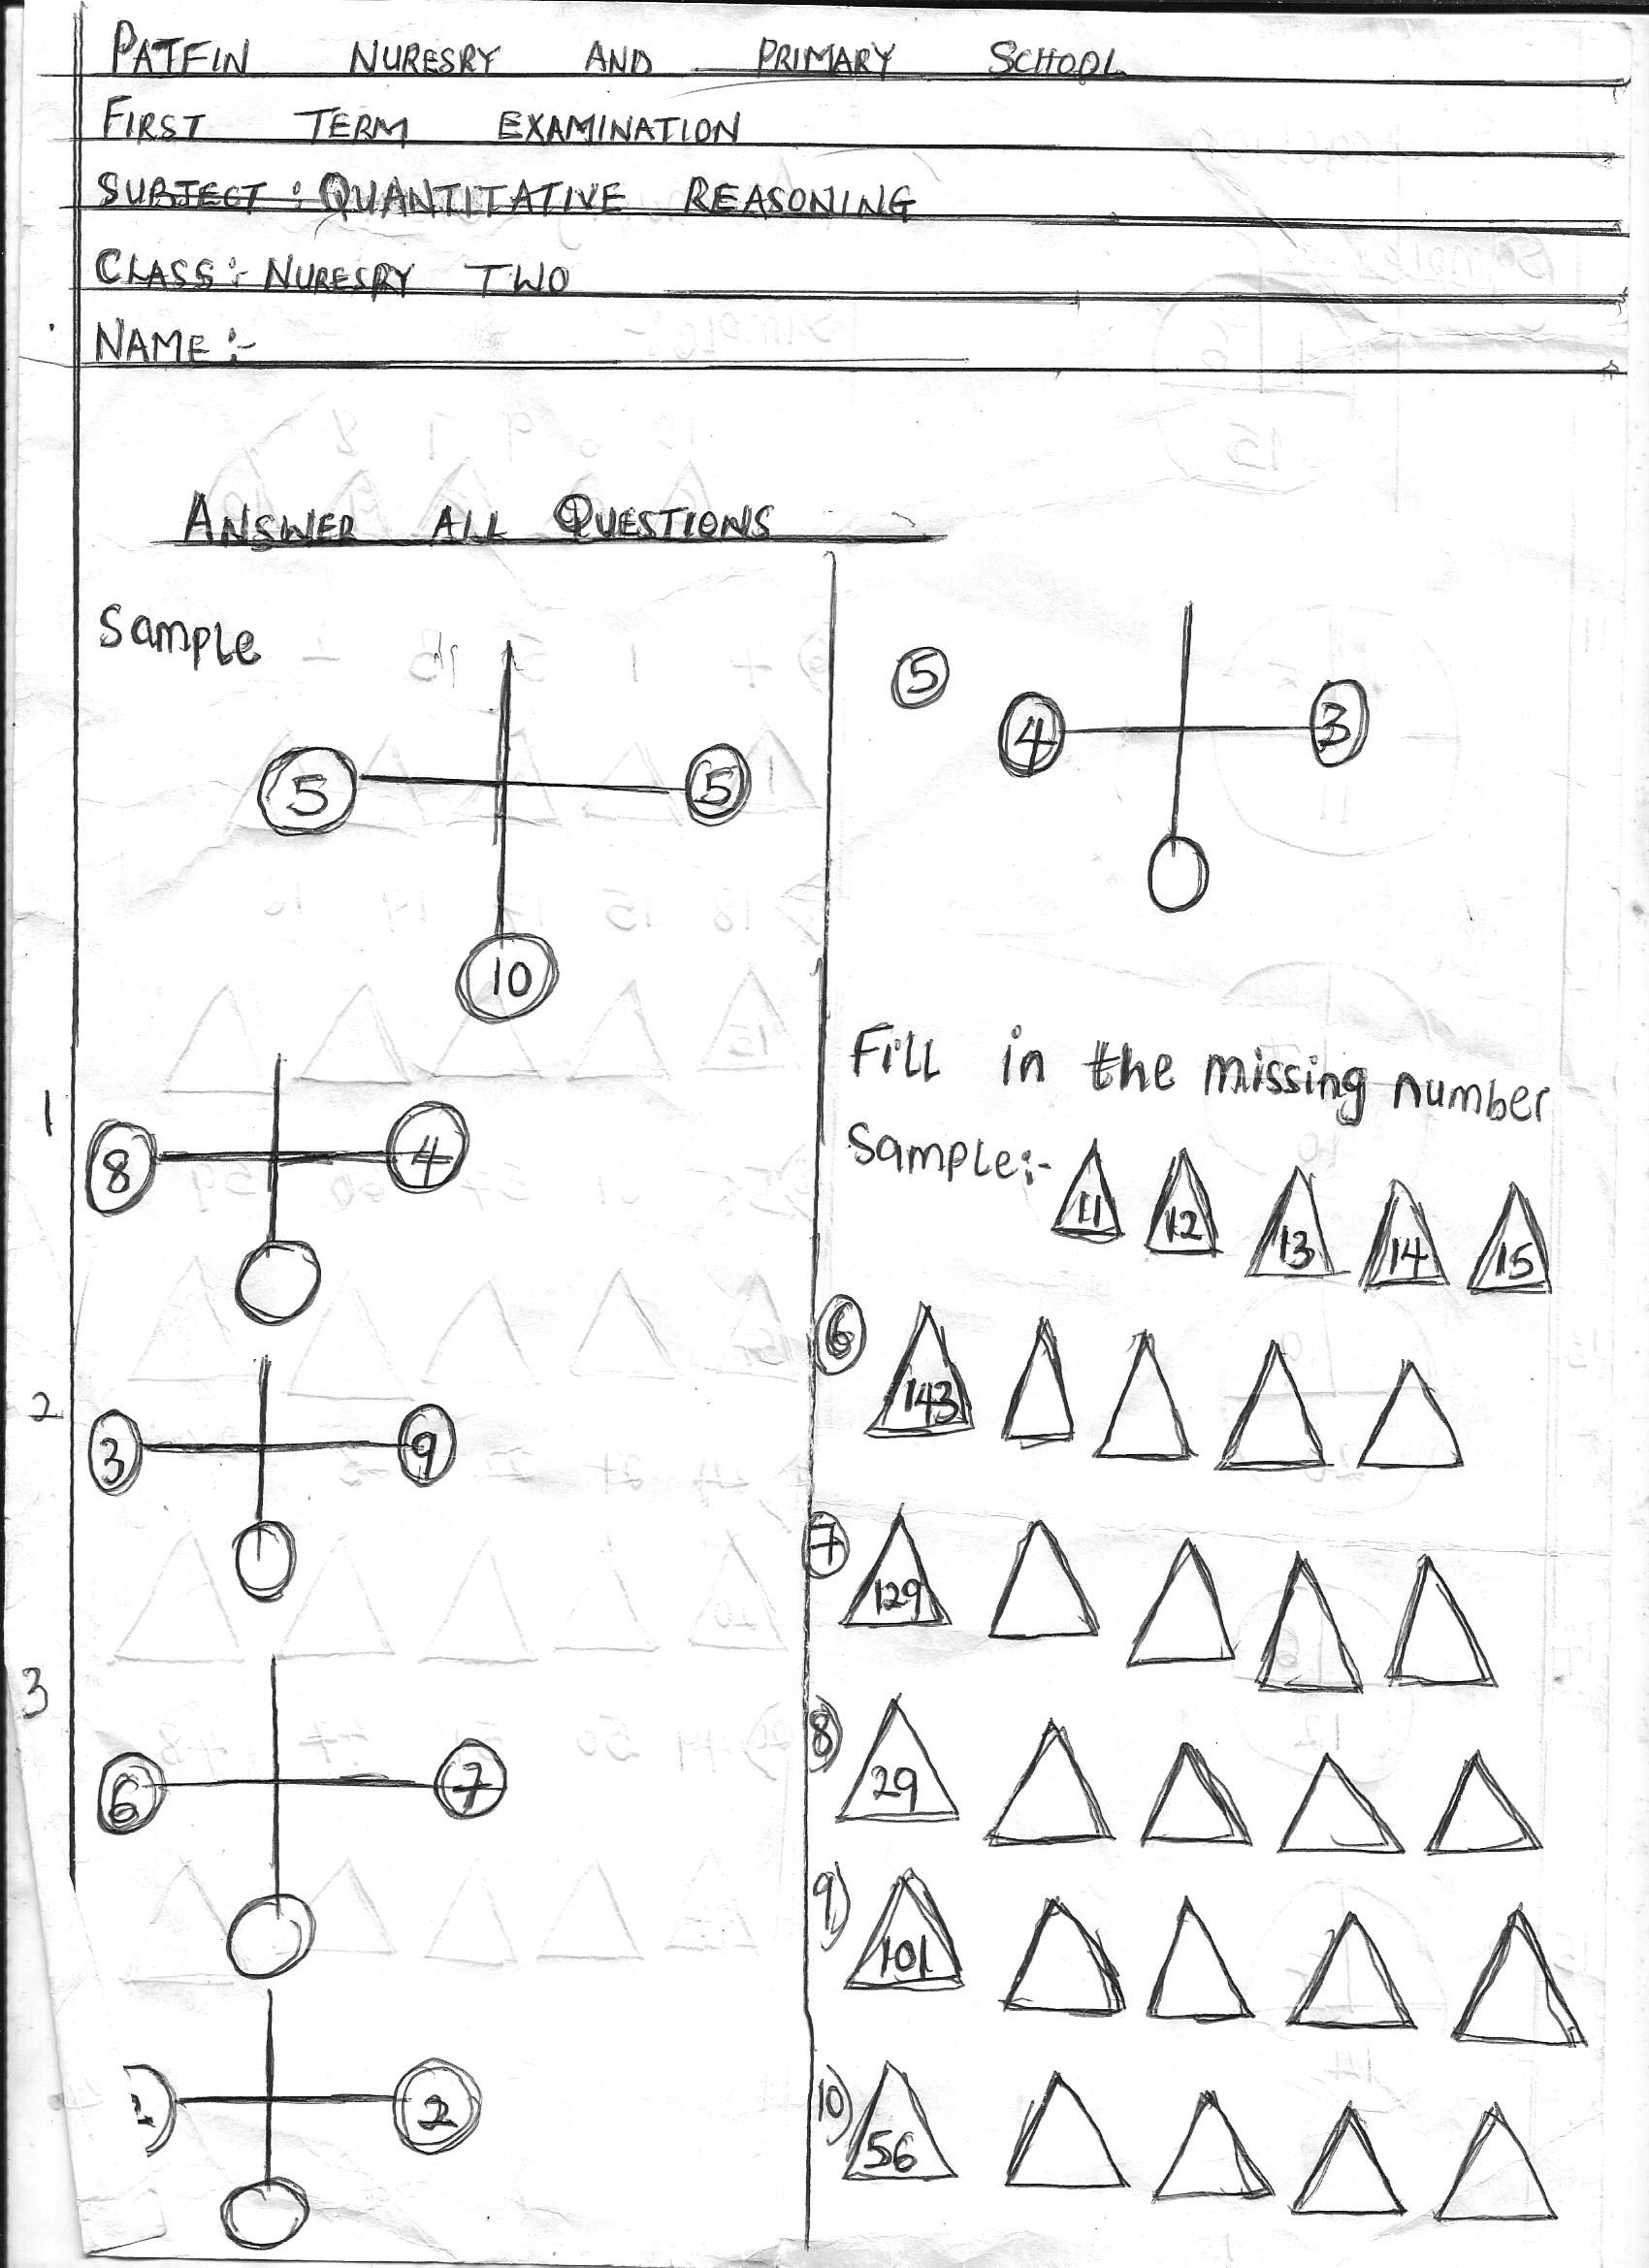 PATFIN NURESRY AND PRIMARY SCHOOL
FIRST TERM EXAMINATION
SUBJECT : QUANTITATIVE REASONING
CLASS :- NURESRY TWO
NAME :-
ANSWER ALL QUESTIONS
Sample
5 5
10
1
8 4
2
3 9
3
6 7
2
5
4 3
Fill in the missing number
Sample:- 11 12 13 14 15
6 143
7 129
8) 29
9) 101
10) 56